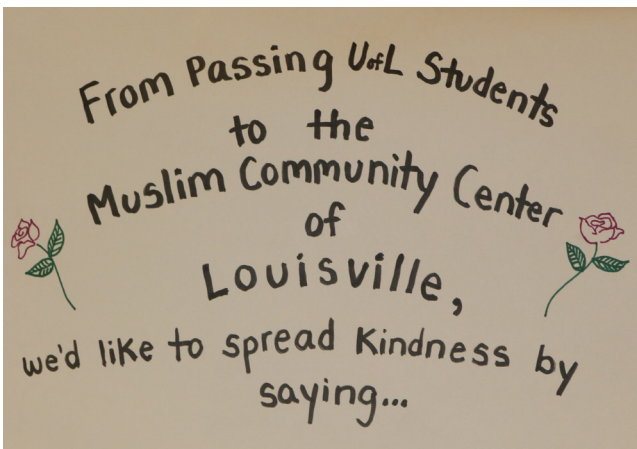 From Passing UofL Students
to the
Muslim Community Center
of
Louisville,
we'd like to spread Kindness by
saying...